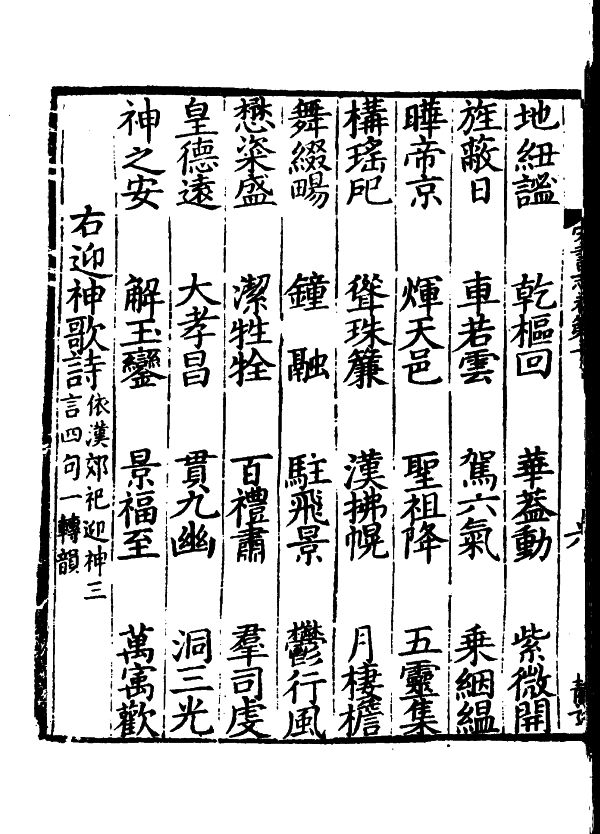 地紐謐　乾樞回　華葢動　紫微開
旌蔽日　車若雲　駕六氣　乘絪縕
曄帝京　煇天邑　聖祖降　五靈集
構瑤戺　聳珠簾　漢拂幌　月棲檐
舞綴畼　鐘　融　駐飛景　鬱行風
懋粢盛　潔牲牷　百禮肅　羣司虔
皇德遠　大孝昌　貫九幽　洞三光
神之安　解玉鑾　景福至　萬寓歡
右迎神歌詩
依漢郊祀迎神三
言四句一轉韻